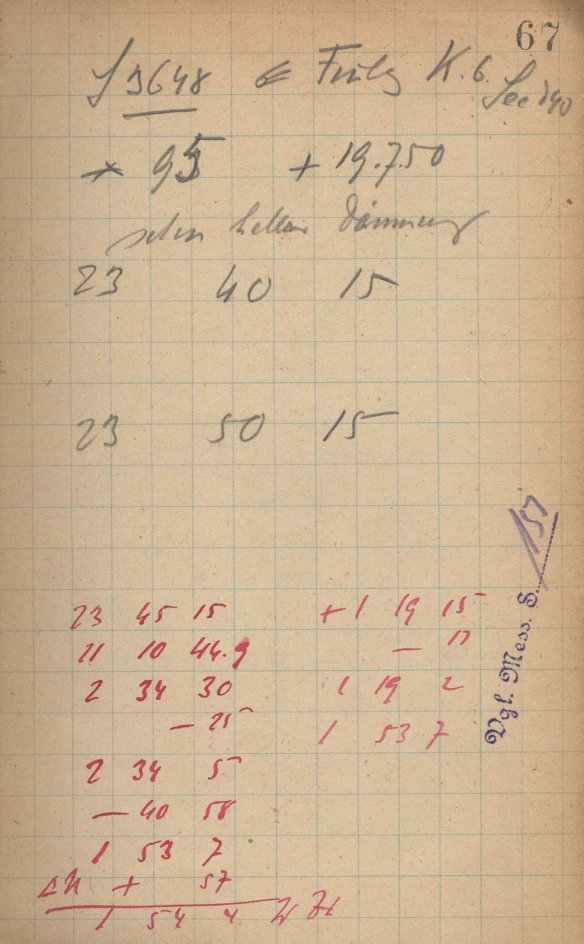 67
J 3648 Finlay K. 6.
95 + 19.750
schon helle Dämmerung
23 40 15
23 50 15
23 45 15 + 1 19 15
21 10 44.9 — 13
2 34 30 1 19 2
— 25 1 53 7
2 34 5
— 40 58
1 53 7
+ 57
1 54 4
Vgl. Mess. S. 151